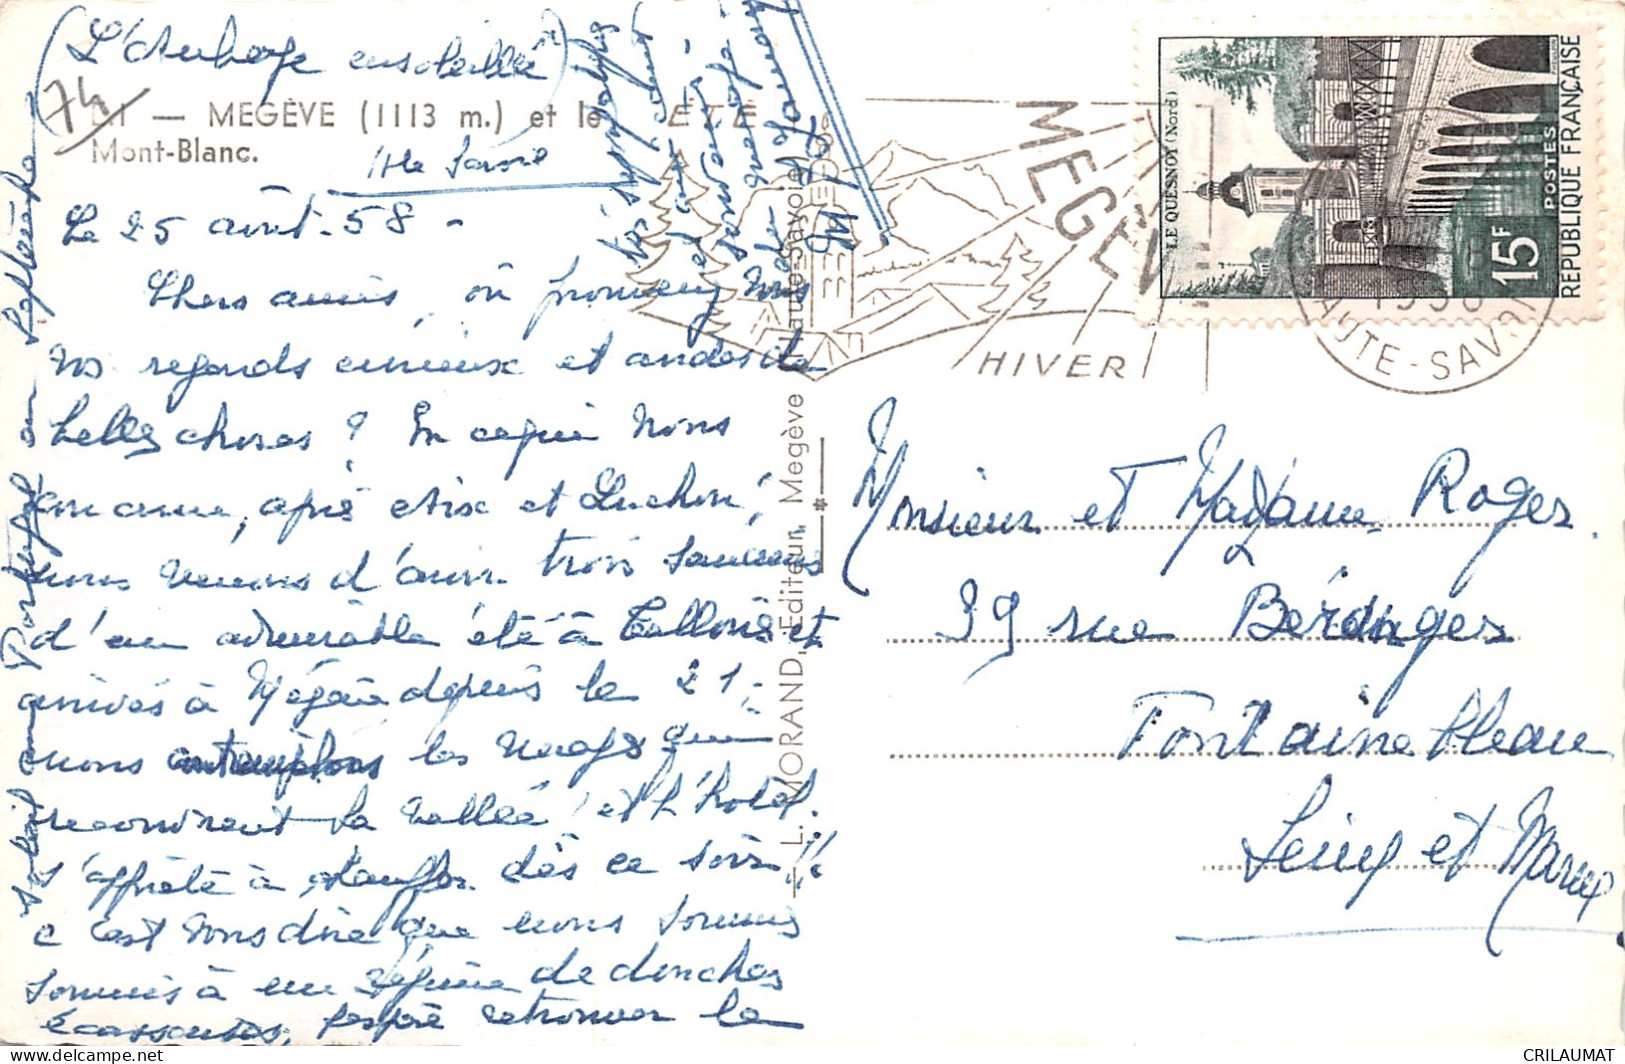 (L'Auberge ensoleillée)
74
— MEGÈVE (1113 m.) et le
Mont-Blanc.
Hte Savoie
Le 25 août. 58 -
Chers amis, où promenez vous
vos regards curieux et avides de
belles choses ? En ce qui nous
concerne, après Aix et Luchon,
nous venons d'avoir trois semaines
d'un admirable été à Talloires et
arrivés à Megève depuis le 21,
nous contemplons les nuages qui
recouvrent la vallée et l'hotel
s'apprête à chauffer dès ce soir !!
C'est vous dire que nous sommes
soumis à un régime de douches
écossaises, j'espère retrouver le
soleil au Portugal en Septembre
Vos sympathies
et
ÉTÉ
MEGÈVE
HIVER
HAUTE-SAVOIE
1958
LE QUESNOY (Nord)
15F
POSTES
RÉPUBLIQUE FRANÇAISE
— L. MORAND, Editeur, Megève (Haute-Savoie)
Monsieur et Madame Roger
39 rue Béranger
Fontainebleau
Seine et Marne
CRILAUMAT